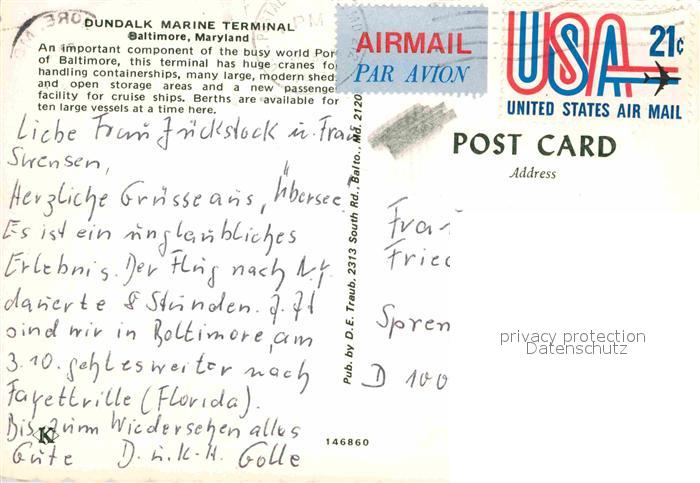 DUNDALK MARINE TERMINAL
Baltimore, Maryland
An important component of the busy world Port
of Baltimore, this terminal has huge cranes for
handling containerships, many large, modern sheds
and open storage areas and a new passenger
facility for cruise ships. Berths are available for
ten large vessels at a time here.
Liebe Frau Jückstock u. Frau
Swensen,
Herzliche Grüsse aus „Übersee"
Es ist ein unglaubliches
Erlebnis. Der Flug nach N.Y.
dauerte 8 Stunden. Z. Zt
sind wir in Baltimore, am
3.10. geht es weiter nach
Fayettville (Florida).
Bis zum Wiedersehen alles
Gute D. u. K-H. Golle
K
146860
Pub. by D.E. Traub. 2313 South Rd., Balto., Md. 2120
AIRMAIL
PAR AVION
USA 21c
UNITED STATES AIR MAIL
POST CARD
Address
Frau
Fried
Spren
D 100
privacy protection
Datenschutz